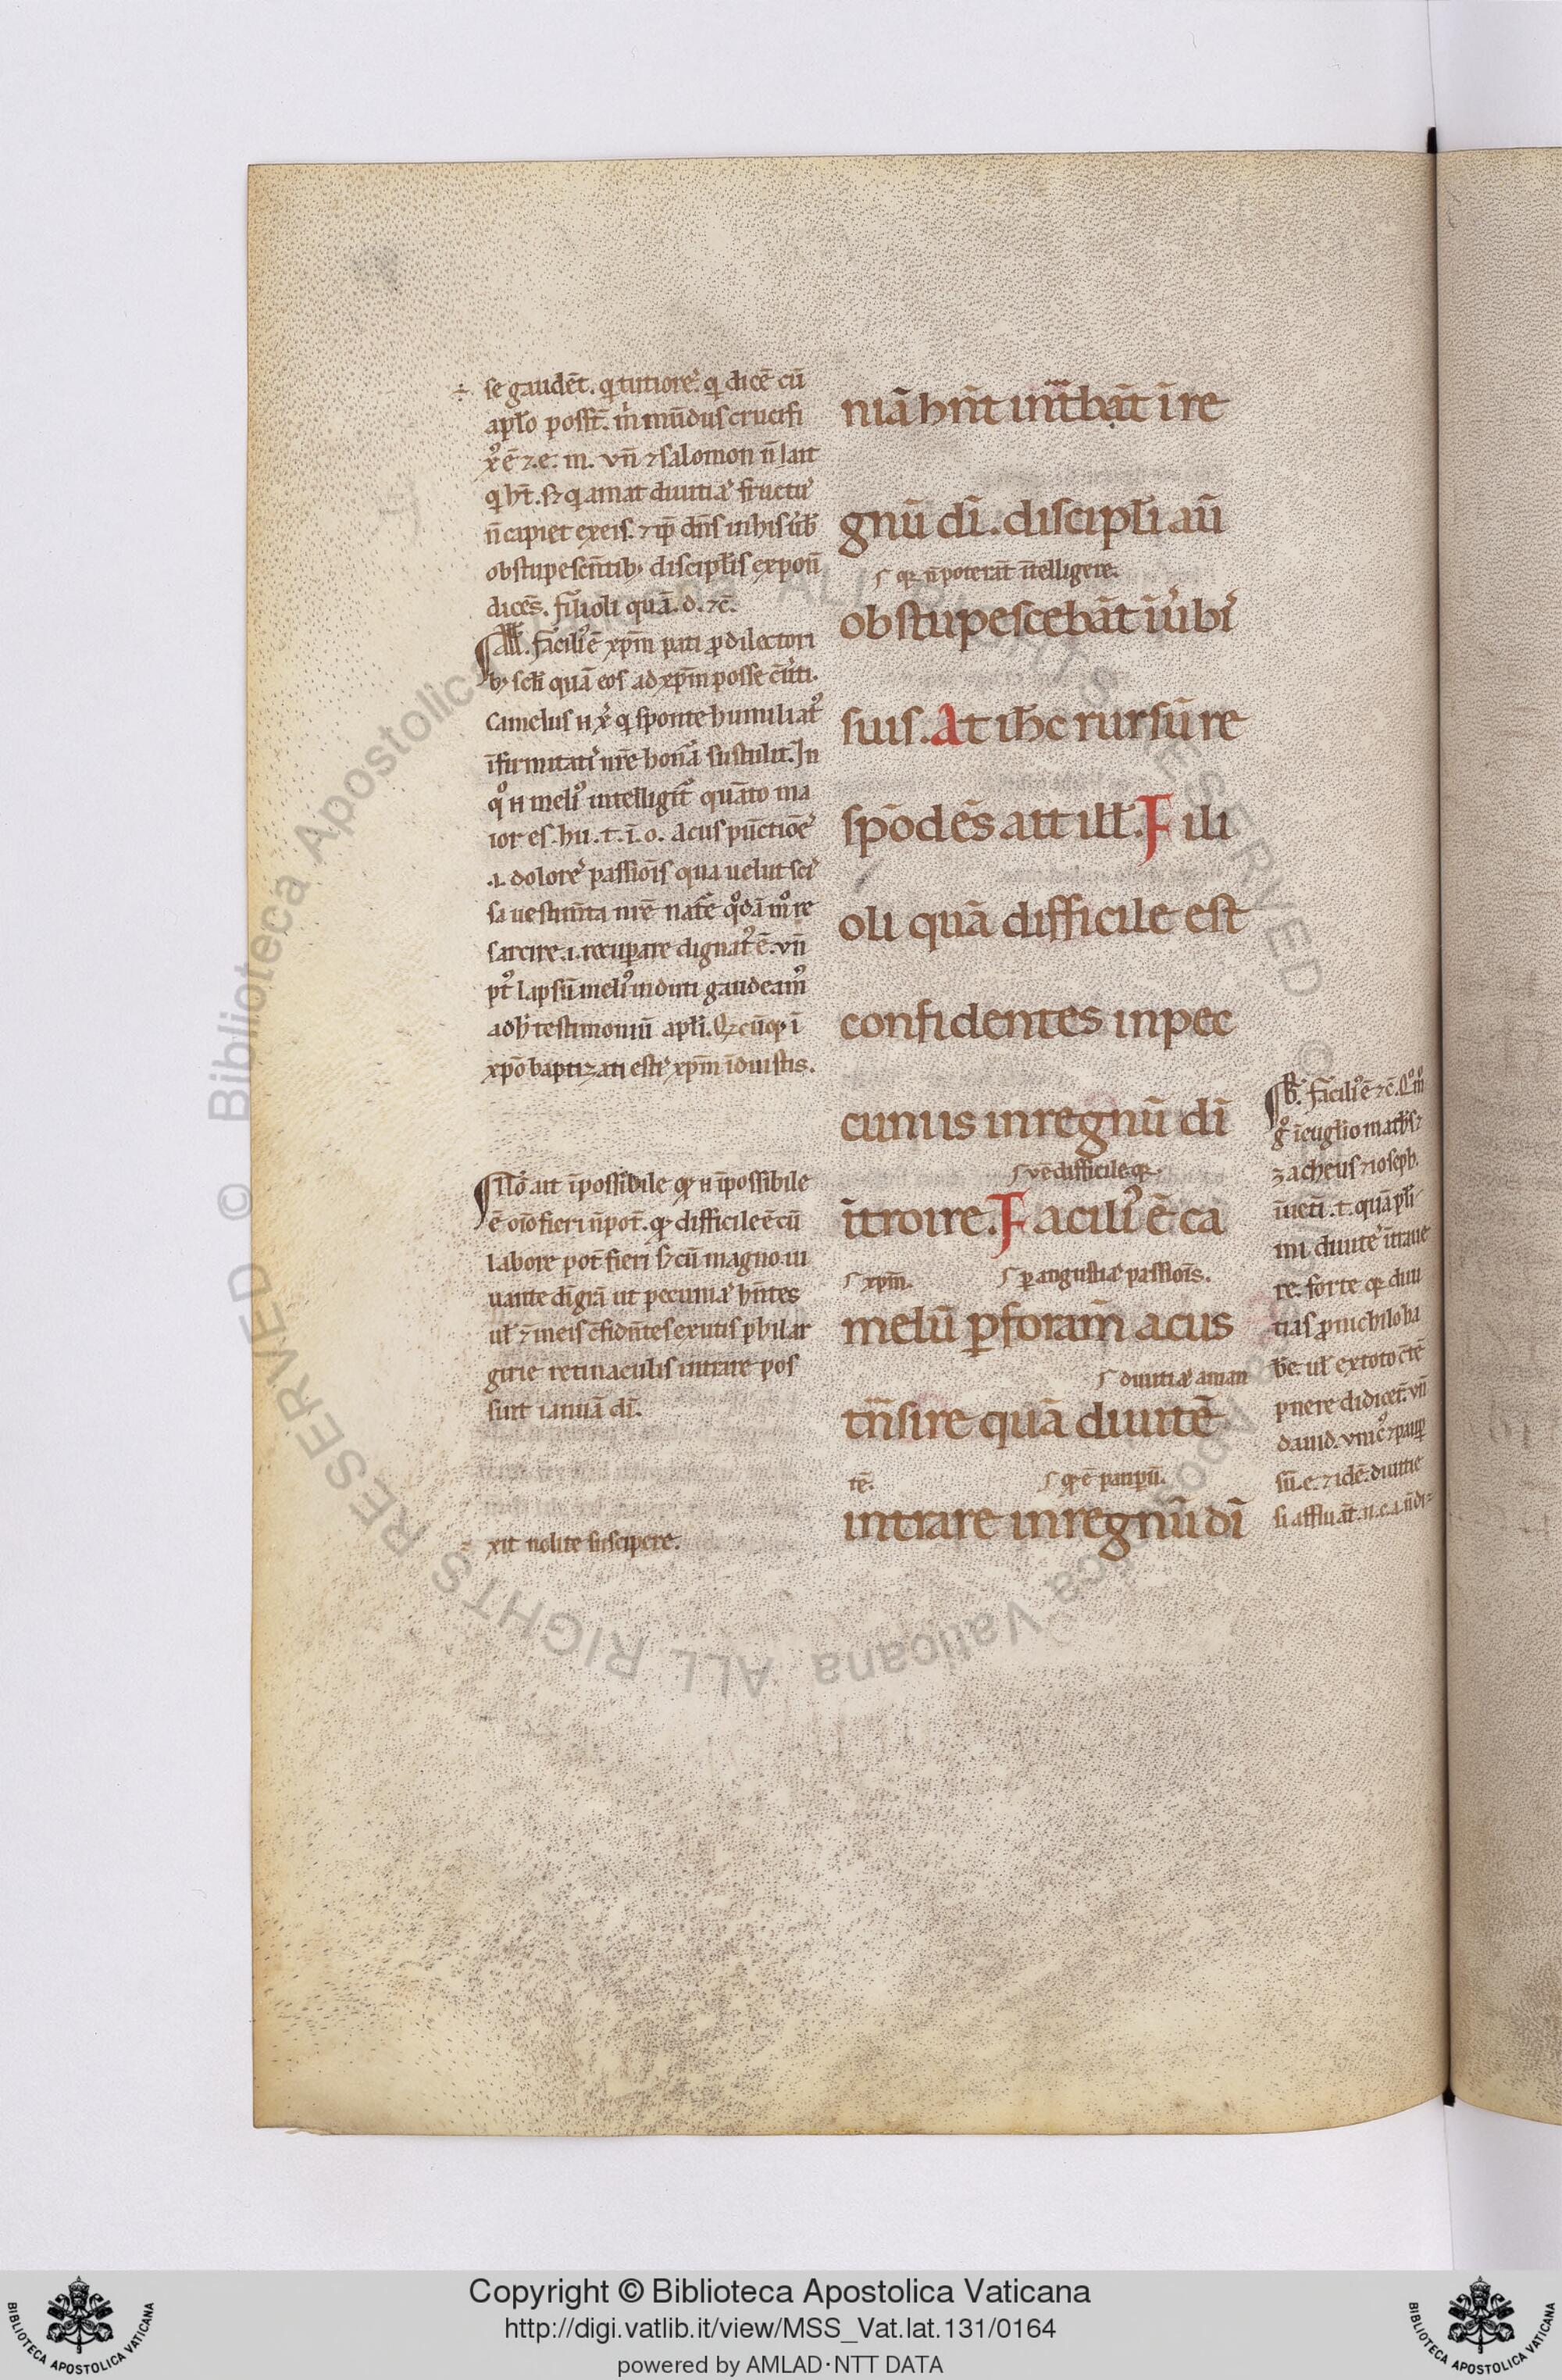 se gaudēt. q tutiorē. q dicē cū
apl̄o posst̄. m̄ mūdus crucifi
xꝰ ē ⁊. e. m. vn̄ ⁊ salomon n̄ lait
q hr̄t. sꝫ q amat diuitias fructū
n̄ capiet ex eis. ⁊ ip̄e dn̄s in his ūb
obstupescn̄tibꝫ discipl̄is expon̄
dicēs. filioli quā. d. ⁊c̄.
All̄. faciliꝰ ē xp̄m pati ꝓ dilectori
bꝫ sc̄li quā eos ad xp̄m posse cūti.
camelus n̄ xꝰ q sponte humiliatꝰ
īfirmitatis nr̄e honā sustulit. In
qͦ n̄ meliꝰ intelligit̄ quāto ma
ior es. hu. t. ī. o. acus pūctiōes
.i. dolores passiōis qua uelut scis
sa uestim̄ta nr̄ē nat̄e qͦdā mͦ re
sarcire .i. recuꝑare dignatꝰ ē. vn̄
pt̄ lapsū meliꝰ induti gaudeamꝰ
ad h̄ testimoniū apl̄i. Qꝫcūqꝫ ī
xp̄o baptizati estis xp̄m īduistis.
Nō ait īpossibile qꝫ n̄ īpossibile
ē oīo fieri n̄ pot̄. qꝫ difficile ē cū
labore pot̄ fieri sꝫ cū magno. iu
uante dī grā ut pecunias hn̄tes
ul̄ ī meis ꝯfidn̄tes exutis philar
girie retinaculis intrare pos
sint ianuā dī.
= xit nolite suscipere.
niā hn̄t int̄bāt ī re
gnū dī. discipl̄i aū
qꝫ n̄ poterāt ītelligere.
obstupescebāt ī ūbis
suis. At ih̄c rursū re
spōdēs ait ill̄. Fili
oli quā difficile est
confidentes in pec
cuniis in regnū dī
ve difficile. qꝫ.
ītroire. Faciliꝰ ē ca
xp̄m. ꝑ angustias passiōis.
melū ꝑ foram̄ acus
diuitias aman
tn̄sire quā diuitē
tē. qꝫ ē pauꝑū.
intrare in regnū dī
B̄. faciliꝰ ē ⁊c̄. Qͦmͦ
gͦ ī euglio math̄s ⁊
zacheus ⁊ ioseph.
īuēti. t. quā pl̄i
mi diuites ītraue
re. forte qꝫ diui
tias ꝓ nichilo ha
bē. ul̄ ex toto ꝯtē
pnere didicer̄t. vn̄
dauid. vnicꝰ ⁊ pauꝑ
sū. e. ⁊ idē. diuitie
si affluāt. n. c. a. n̄ di=
Copyright © Biblioteca Apostolica Vaticana
http://digi.vatlib.it/view/MSS_Vat.lat.131/0164
powered by AMLAD·NTT DATA